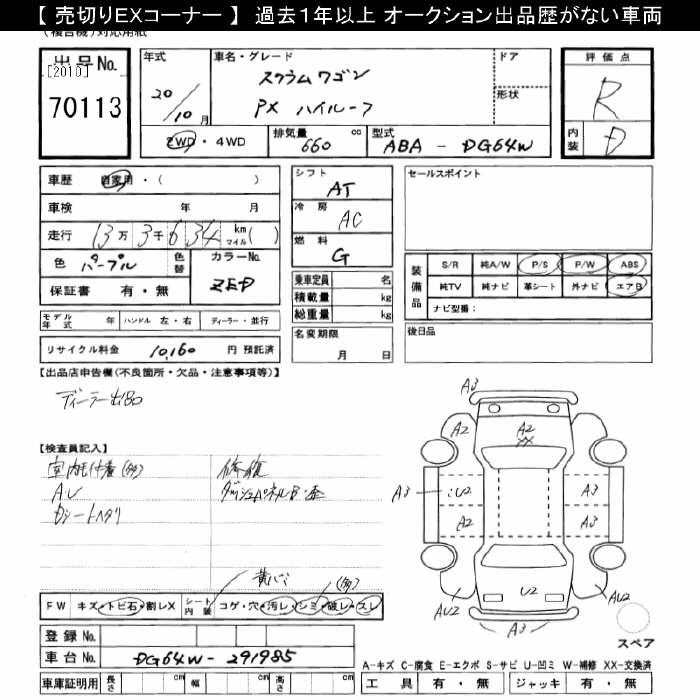 【 売切りEXコーナー 】 過去1年以上 オークション出品歴がない車両
(複合機) 対応用紙
出品No.
[2010]
70113
年式
20/10月
車名・グレード
スクラムワゴン
PX ハイルーフ
ドア
形状
2WD・4WD
排気量
660 cc
型式
ABA - DG64W
評価点
R
内装
D
車歴 自家用・( )
車検 年 月
走行 13万3千634 km マイル( )
色 パープル 色替
カラーNo.
保証書 有・無
ZED
モデル年式 年 ハンドル 左・右 ディーラー・並行
リサイクル料金 10,160 円 預託済
シフト
AT
冷房
AC
燃料
G
乗車定員 名
積載量 kg
総重量 kg
名変期限
月 日
セールスポイント
装備品
S/R 純A/W P/S P/W ABS
純TV 純ナビ 革シート 外ナビ エアB
ナビ型番:
後日品
【出品店申告欄(不良箇所・欠品・注意事項等)】
ディーラー出品
【検査員記入】
修復
FW キズ・トビ石・割レX
シート内装 コゲ・穴・汚レ・シミ・破レ・スレ
(多)
A3
A2
A2
XX
A2
A3
U2
A3
A2
A3
AU2
U2
AU2
A3
スペア
登録No.
車台No. DG64W-291985
車庫証明用 長さ cm 幅 cm 高さ cm
A-キズ C-腐食 E-エクボ S-サビ U-凹ミ W-補修 XX-交換済
工具 有・無 ジャッキ 有・無